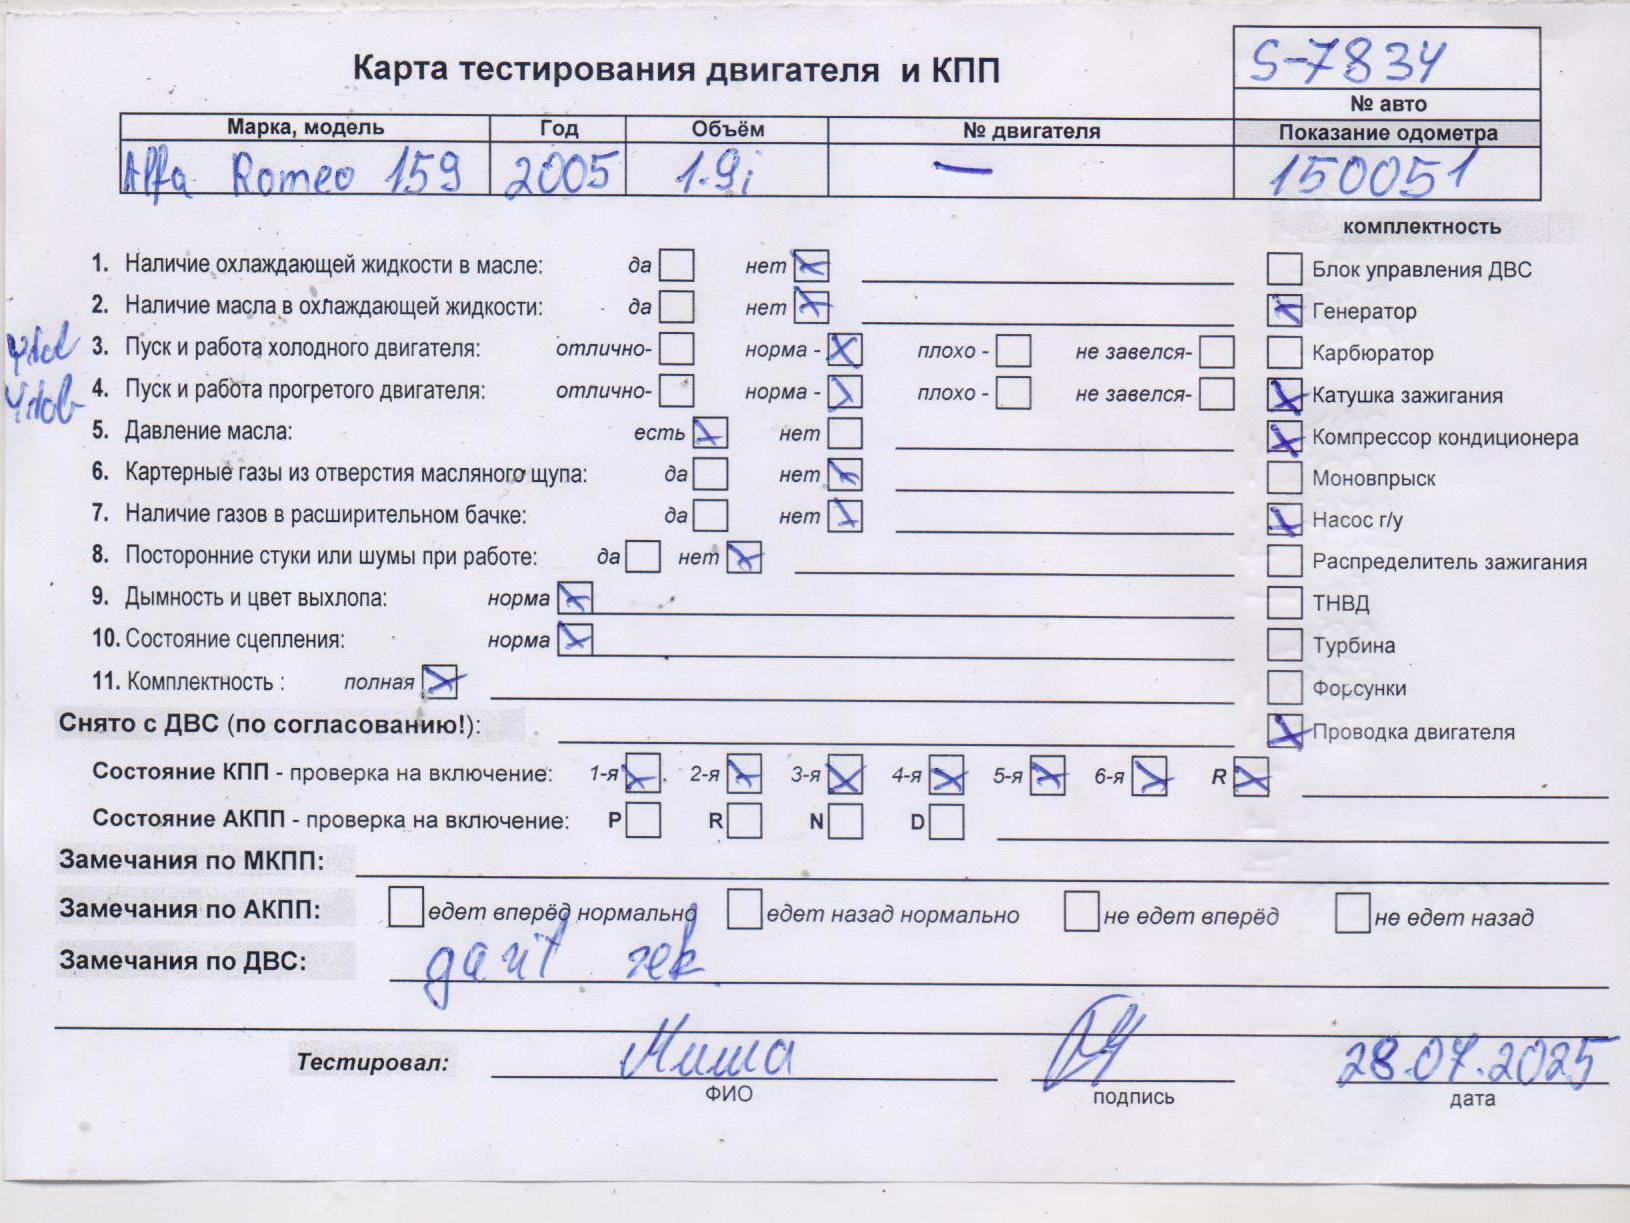 Карта тестирования двигателя и КПП
S-7834
№ авто
Марка, модель Год Объём № двигателя Показание одометра
Alfa Romeo 159 2005 1.9i — 150051
комплектность
1. Наличие охлаждающей жидкости в масле: да нет
Блок управления ДВС
2. Наличие масла в охлаждающей жидкости: да нет
Генератор
3. Пуск и работа холодного двигателя: отлично- норма - плохо - не завелся-
Карбюратор
4. Пуск и работа прогретого двигателя: отлично- норма - плохо - не завелся-
Катушка зажигания
5. Давление масла: есть нет
Компрессор кондиционера
6. Картерные газы из отверстия масляного щупа: да нет
Моновпрыск
7. Наличие газов в расширительном бачке: да нет
Насос г/у
8. Посторонние стуки или шумы при работе: да нет
Распределитель зажигания
9. Дымность и цвет выхлопа: норма
ТНВД
10. Состояние сцепления: норма
Турбина
11. Комплектность : полная
Форсунки
Снято с ДВС (по согласованию!):
Проводка двигателя
Состояние КПП - проверка на включение: 1-я 2-я 3-я 4-я 5-я 6-я R
Состояние АКПП - проверка на включение: P R N D
Замечания по МКПП:
Замечания по АКПП: едет вперёд нормально едет назад нормально не едет вперёд не едет назад
Замечания по ДВС:
Тестировал: Миша 28.07.2025
ФИО подпись дата